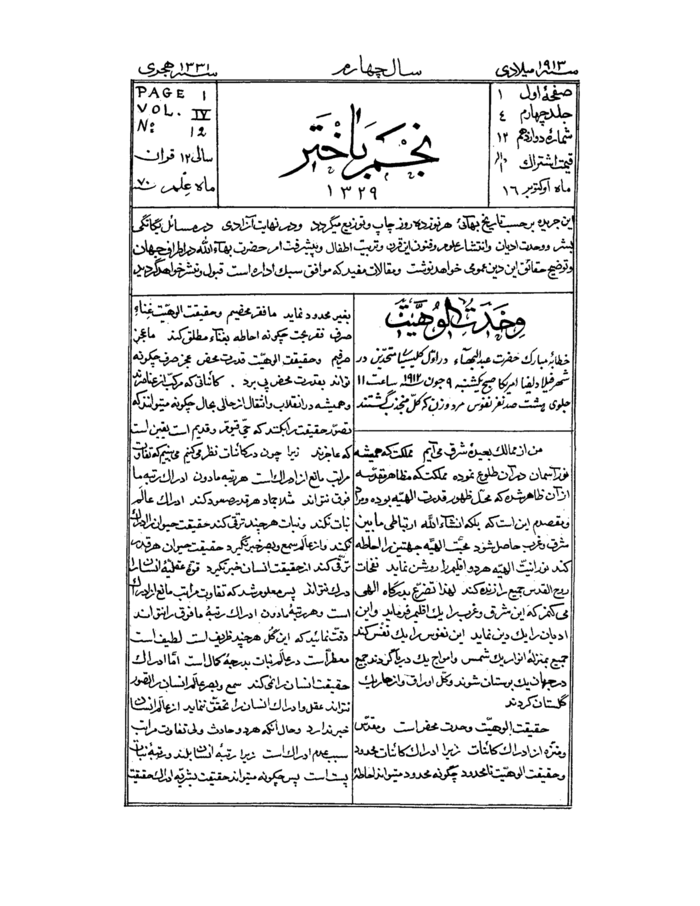 سنه ١٩١٣ ميلادى
سال چهارم
سنه ١٣٣١ هجرى
صفحهٔ اول ١
جلد چهارم ٤
شمارهٔ دوازدهم ١٢
قيمت اشتراك
ماه اوكتوبر ١٦
نجم باختر
١٣٢٩
PAGE 1
VOL. IV
No: 12
سالى ١٢ قران
ماه علم ٧٠
اين جريده بر حسب تاريخ بهائى هر نوزده روز چاپ و توزيع ميگردد و در نهايت آزادى در مسائل يگانگى
بشر و وحدت اديان و انتشار علوم و فنون اين قرن و تربيت اطفال و پيشرفت امر حضرت بهاء الله در اطراف جهان
و توضيح حقائق اين دين عمومى خواهد نوشت و مقالات مفيد كه موافق سبك اداره است قبول و نشر خواهد گرديد
وحدت الوهيّت
خطابهٔ مبارك حضرت عبدالبهاء در اوّل كليساى متّحدين در
شهر فلادلفيا امريكا صبح يكشنبه ٩ جون ١٩١٢ ساعت ١١
جلوى هشت صد نفر نفوس مرد و زن كه كل منجذب گشتند
من از ممالك بعيدهٔ شرق مى‌آيم مملكت كه هميشه
نور آسمان در آن طلوع نموده مملكت كه مظاهر مقدّسه
از آن ظاهر شده كه محلّ ظهور قدرت الهيّه بوده و مراد
و مقصدم اين است كه بلكه انشاء الله ارتباطى مابين
شرق و غرب حاصل شود محبّت الهيّه جهتين را احاطه
كند نورانيّت الهيّه هر دو اقليم را روشن نمايد نفحات
روح القدس جميع را زنده كند لهذا تضرّع بدرگاه الهى
مى‌كنم كه اين شرق و غرب را يك اقليم فرمايد و اين
اديان را يك دين نمايد اين نفوس را يك نفس كند
جميع بمنزلهٔ انوار يك شمس و امواج يك دريا گردند جميع
درختهاى يك بوستان شوند و كل اوراق و ازهار يك
گلستان گردند
حقيقت الوهيّت وحدت محضر است و مقدّس
و منزّه از ادراك كائنات زيرا ادراك كائنات محدود
و حقيقت الوهيّت نامحدود چگونه محدود ميتواند احاطهٔ
بغير محدود نمايد ما فقر محضيم و حقيقت الوهيّت غناء
صرف فقر بحت چگونه احاطه بغناء مطلق كند ما عجز
صرفيم و حقيقت الوهيّت قدرت محض عجز صرف چگونه
تواند بقدرت محض پى برد . كائناتى كه مركّب از عناصرند
و هميشه در انقلاب و انتقال از حالى بحال چگونه ميتوانند كه
تصوّر حقيقت را بكنند كه حىّ قيّوم و قديم است يقين است
كه عاجزند زيرا چون در كائنات نظر ميكنيم مى‌بينيم كه تفاوت
مراتب مانع از ادراك است هر رتبهٔ مادون ادراك رتبهٔ ما
فوق نتواند مثلا جماد هر قدر صعود كند ادراك عالم
نبات نكند و نبات هر چند ترقّى كند حقيقت حيوان را ادراك
نكند و از عالم سمع و بصر خبر نگيرد حقيقت حيوان هر قدر
ترقّى كند از حقيقت انسان خبر نگيرد قوّهٔ عقليّهٔ انسان را
درك نتواند پس معلوم شد كه تفاوت مراتب مانع از ادراك
است و هر رتبهٔ مادون ادراك رتبهٔ ما فوق را نتواند
دقّت نمائيد كه اين گل هر چند ظريف است لطيف است
معطّر است در عالم نبات بدرجهٔ كمال است امّا ادراك
حقيقت انسان را نمى‌كند سمع و بصر عالم انسان را تصوّر
نتواند عقل و ادراك انسان را تحقّق ننمايد از عالم انسان
خبر ندارد و حال آنكه هر دو حادث ولى تفاوت مراتب
سبب عدم ادراك است زيرا رتبهٔ انسان بلند و رتبهٔ نبات
پست است پس چگونه ميتواند حقيقت بشريّه ادراك حقيقت